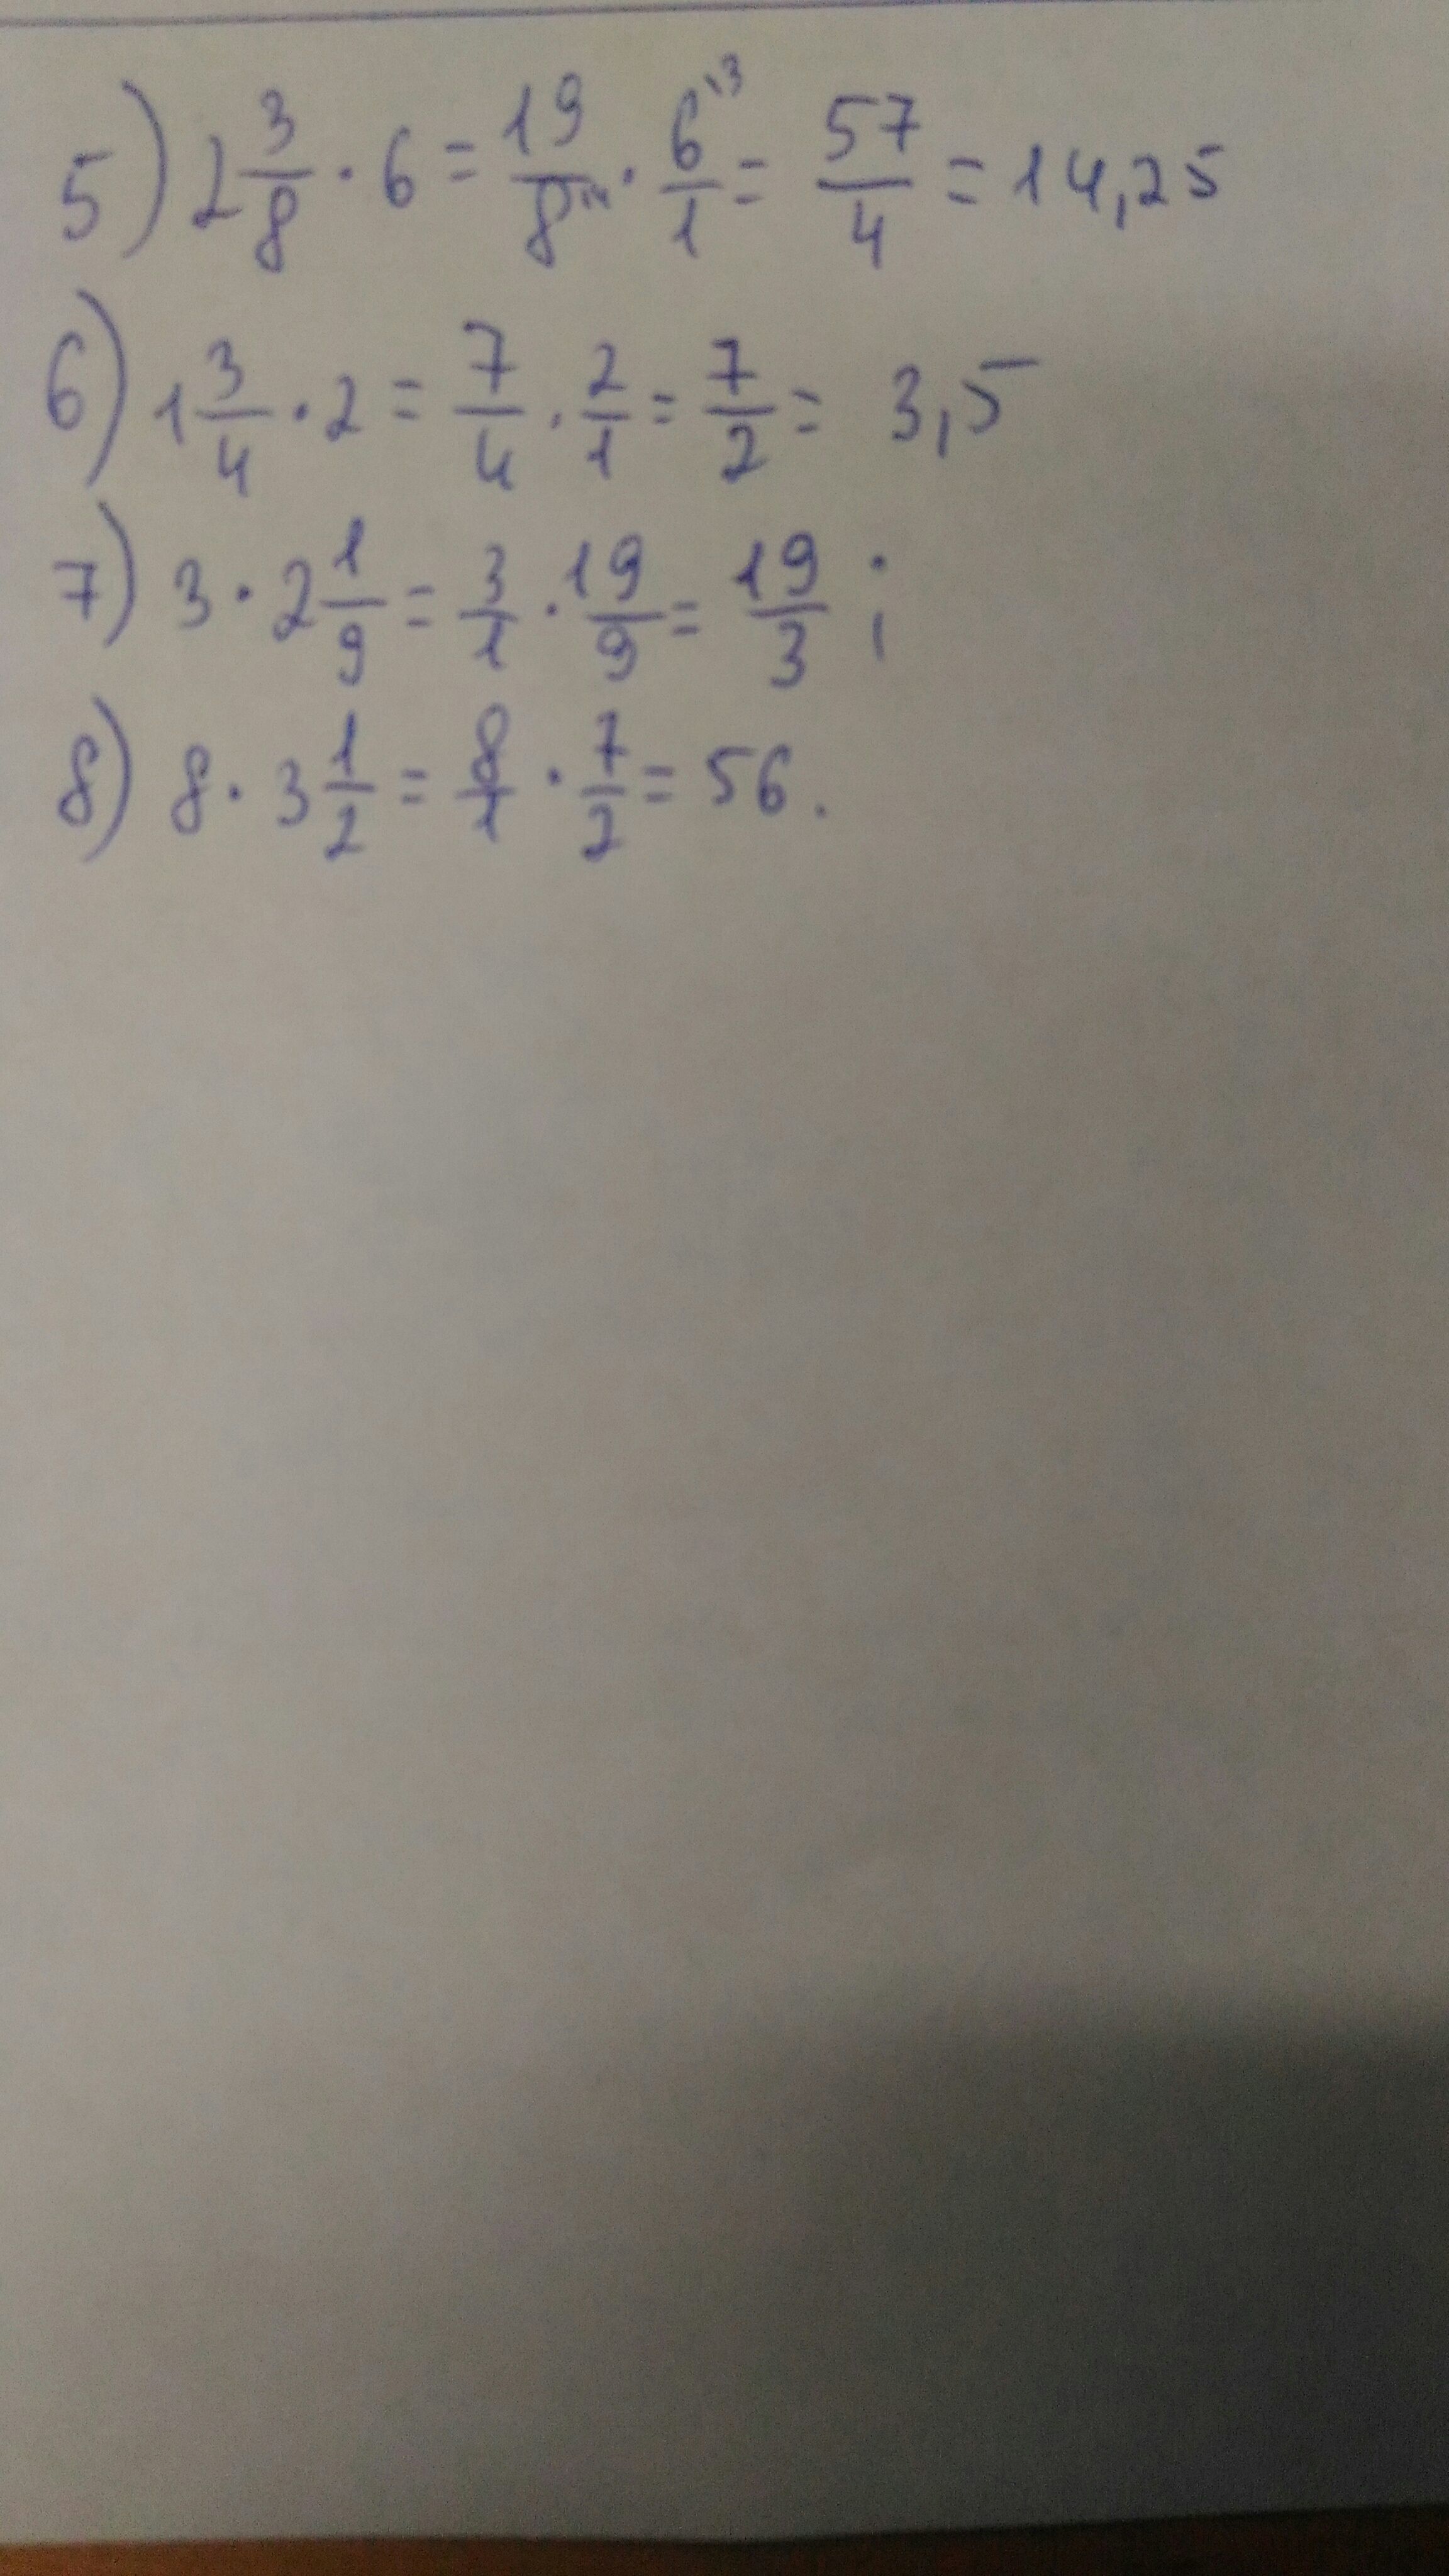 5) 2 3/8 · 6 = 19/8\4 · 6\3/1 = 57/4 = 14,25
6) 1 3/4 · 2 = 7/4 · 2/1 = 7/2 = 3,5
7) 3 · 2 1/9 = 3/1 · 19/9 = 19/3 ;
8) 8 · 3 1/2 = 8/1 · 7/2 = 56 .